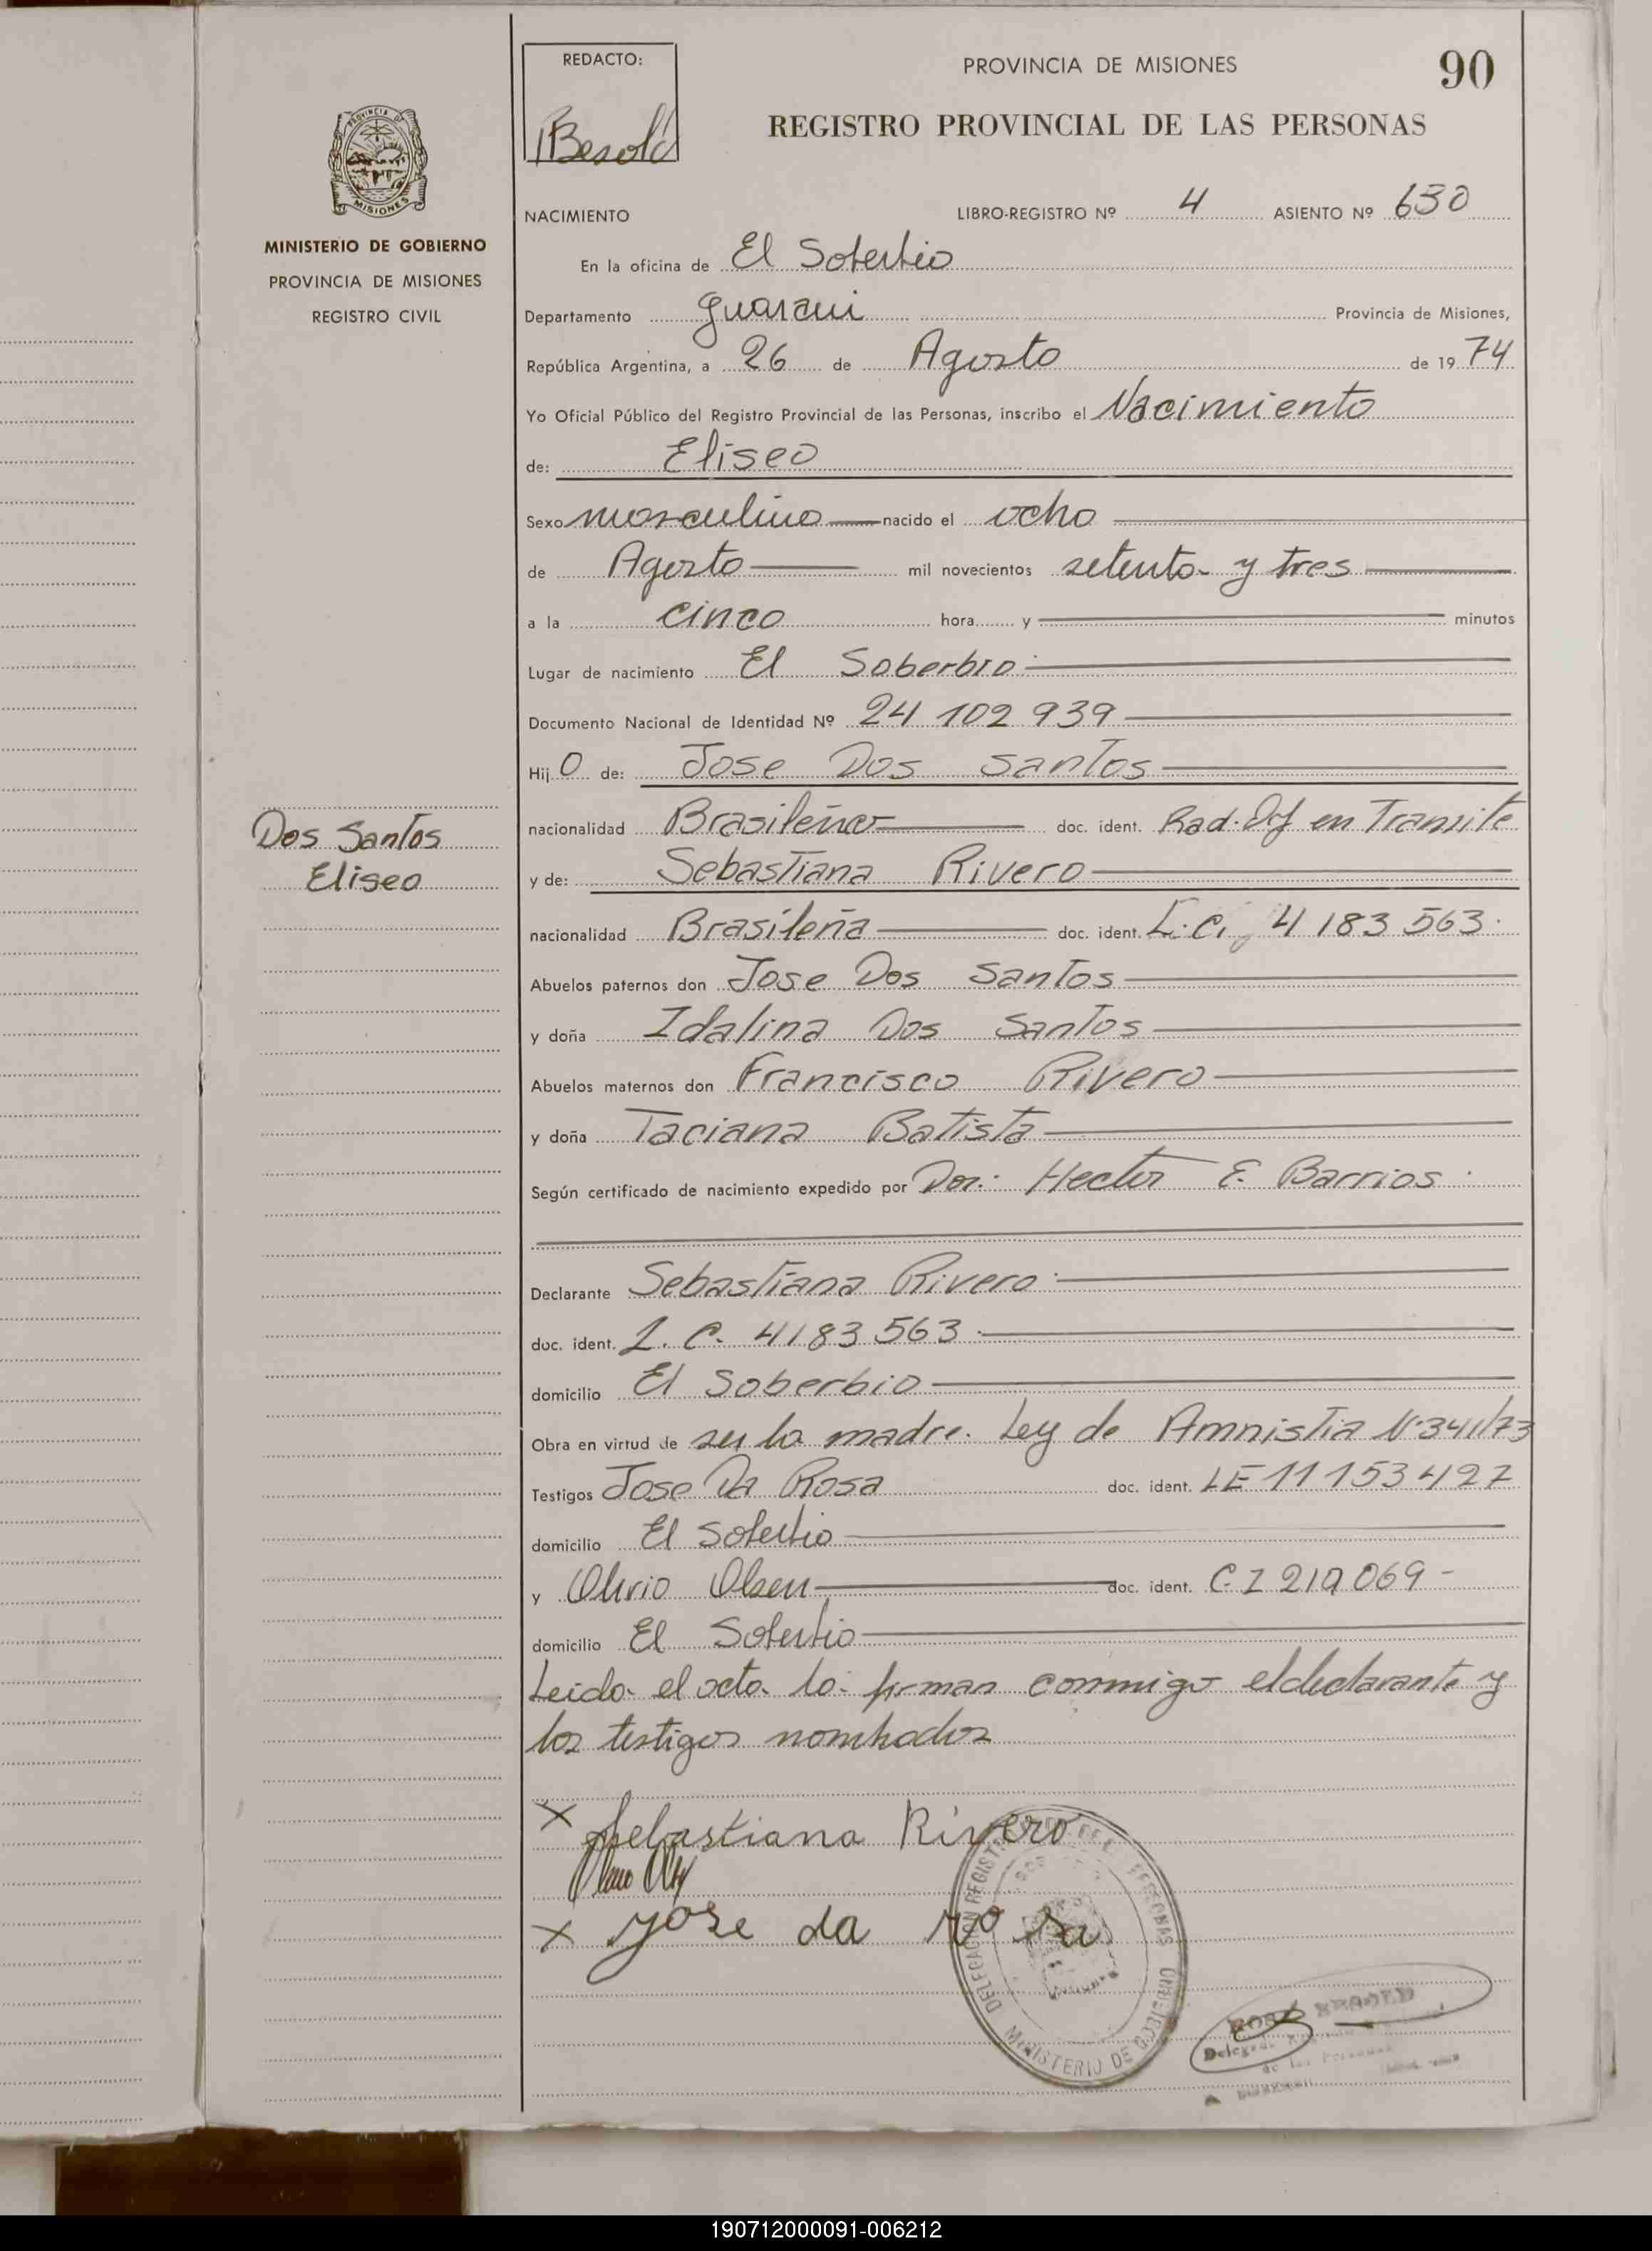 REDACTO:
Besold
PROVINCIA DE MISIONES
90
REGISTRO PROVINCIAL DE LAS PERSONAS
PROVINCIA DE
MISIONES
MINISTERIO DE GOBIERNO
PROVINCIA DE MISIONES
REGISTRO CIVIL
NACIMIENTO LIBRO-REGISTRO Nº 4 ASIENTO Nº 630
En la oficina de El Soberbio
Departamento Guarani Provincia de Misiones,
República Argentina, a 26 de Agosto de 19 74
Yo Oficial Público del Registro Provincial de las Personas, inscribo el Nacimiento
de: Eliseo
Sexo masculino nacido el ocho
de Agosto mil novecientos setenta y tres
a la cinco hora y minutos
Lugar de nacimiento El Soberbio
Documento Nacional de Identidad Nº 24 102 939
Hij o de: Jose Dos Santos
nacionalidad Brasileño doc. ident. Rad. Def en Transite
Dos Santos
Eliseo
y de: Sebastiana Rivero
nacionalidad Brasileña doc. ident. L.C. 4 183 563
Abuelos paternos don Jose Dos Santos
y doña Idalina Dos Santos
Abuelos maternos don Francisco Rivero
y doña Taciana Batista
Según certificado de nacimiento expedido por Dor.: Hector E. Barrios
Declarante Sebastiana Rivero
doc. ident. L. C. 4183 563
domicilio El Soberbio
Obra en virtud de ser la madre. Ley de Amnistia Nº 341/73
Testigos Jose Da Rosa doc. ident. LE 11 153 427
domicilio El Soberbio
y Olivio Olsen doc. ident. C I 210 069
domicilio El Soberbio
Leida el acta la firman conmigo el declarante y
los testigos nombrados
x Sebastiana Rivero
x Jose da rosa
DELEGACION REGISTRO DE PERSONAS
MINISTERIO DE GOBIERNO
190712000091-006212